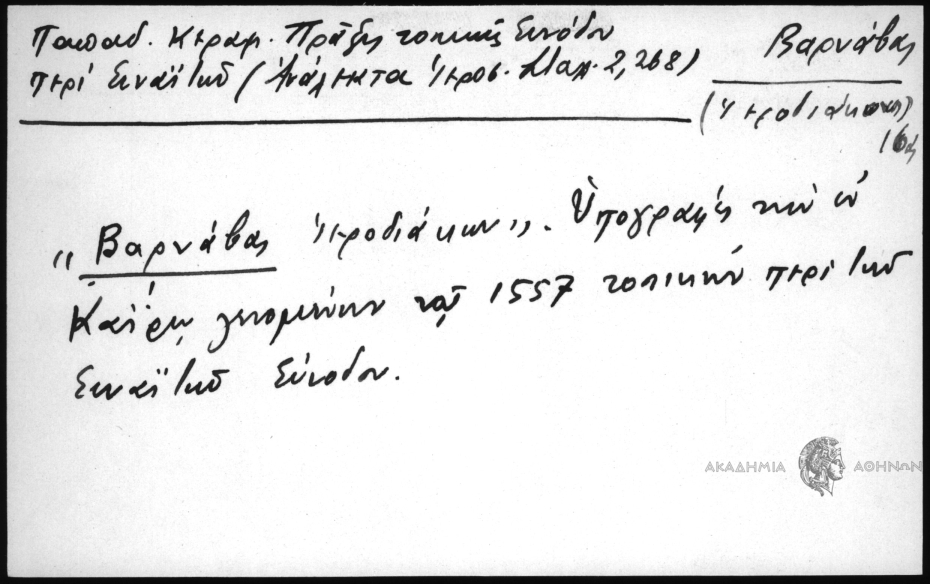 Παπαδ. Κεραμ. Πρᾶξις τοπικῆς Συνόδου
περὶ Σιναϊτῶν (Ἀνάλεκτα Ἱεροσ. Σταχ. 2, 268)
Βαρνάβας
(Ἱεροδιάκονος)
16ος
„Βαρνάβας ἱεροδιάκων„. Ὑπογραφεὺς τὴν ἐν
Καΐρῳ γενομένην τῷ 1557 τοπικὴν περὶ τῶν
Σιναϊτῶν Σύνοδον.
ΑΚΑΔΗΜΙΑ ΑΘΗΝΩΝ